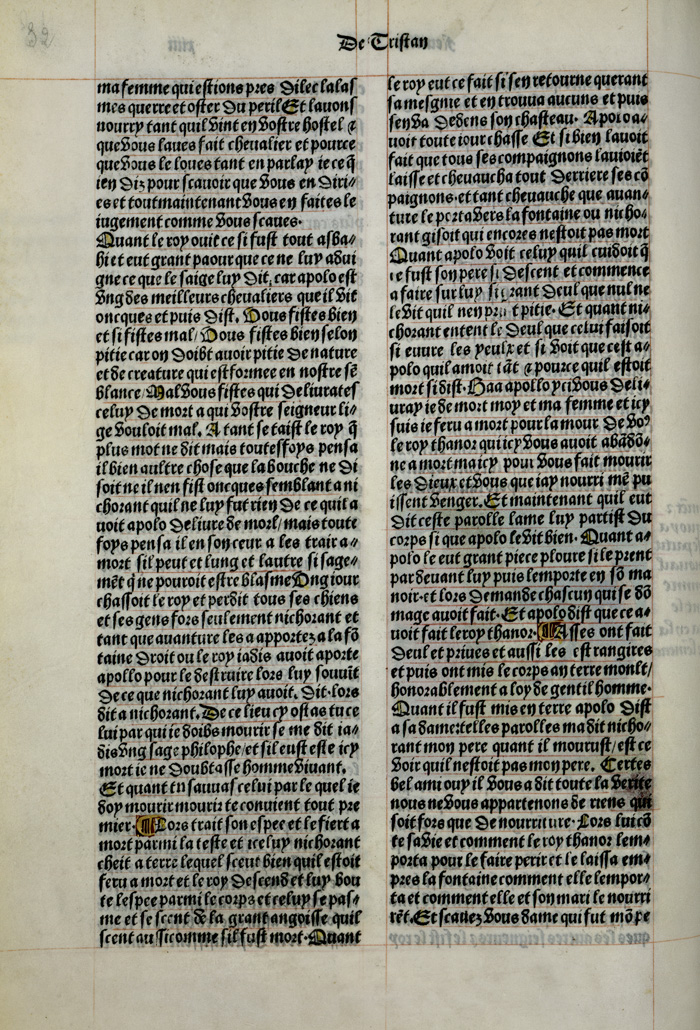 De Tristan
ma femme qui estions pres dilec la las
mes querre et oster du peril Et lauons
nourry tant quil vint en vostre hostel ⁊
que vous laues fait cheualier et pource
que vous le loues tant en parlay ie ce q̄
ien diz pour scauoir que vous en diri⸗
es et tout maintenant vous en faites le
iugement comme vous scaues.
Quant le roy ouit ce si fust tout asba⸗
hi et eut grant paour que ce ne luy adui
gne ce que le saige luy dit, car apolo est
vng des meilleurs cheualiers que il vit
oncques et puis dist. Vous fistes bien
et si fistes mal/ Vous fistes bien selon
pitie car on doibt auoir pitie de nature
et de creature qui est formee en nostre sē
blance/ Mal vous fistes qui deliurates
celuy de mort a qui vostre seigneur li⸗
ge vouloit mal. A tant se taist le roy q̄
plus mot ne dit mais toutesfoys pensa
il bien aultre chose que la bouche ne di
soit ne il nen fist oncques semblant a ni
chorant quil ne luy fut rien de ce quil a
uoit apolo deliure de morl/ mais toute
foys pensa il en son ceur a les trair a⸗
mort sil peut et lung et lautre si sage⸗
mēt q̄ ne pouroit estre blasme Ong iour
chassoit le roy et perdit tous ses chiens
et ses gens fors seulement nichorant et
tant que auanture les a apportez a la fō
taine droit ou le roy iadis auoit aporte
apollo pour le destruire lors luy souuīt
de ce que nichorant luy auoit. Dit. lors
dit a nichorant. De ce lieu cy ostas tu ce
lui par qui ie doibs mourir se me dit ia⸗
dis vng sage philophe/ et sil eust este icy
mort ie ne doubtasse homme viuant.
Et quant tu sauuas celui par le quel ie
doy mourir mourir te conuient tout pre
mier. ¶ Lors trait son espee et le fiert a
mort parmi la teste et iceluy nichorant
cheit a terre lequel sceut bien quil estoit
feru a mort et le roy descend et luy bou
te lespee parmi le corps et celuy se pas⸗
me et se scent de la grant angoisse quil
scent aussi comme sil fust mort. Quant
le roy eut ce fait si sen retourne querant
sa mesgnie et en trouua aucuns et puis
sen va dedens son chasteau. Apolo a⸗
uoit toute iour chasse Et si bien lauoit
fait que tous ses compaignons lauioiēt
laisse et cheuaucha tout derriere ses cō
paignons. et tant cheuauche que auan⸗
ture le porta vers la fontaine ou nicho⸗
rant gisoit qui encores nestoit pas mort
Quant apolo voit celuy quil cuidoit q̄
ce fust son pere si descent et commence
a faire sur luy si grant deul que nul ne
le vit quil nen prīt pitie. Et quant ni⸗
chorant entent le deul que celui faisoit
si euure les yeulx et si voit que cest a⸗
polo quil amoit tāt ⁊ pource quil estoit
mort si dist. Haa apollo yci vous deli⸗
uray ie de mort moy et ma femme et icy
suis ie feru a mort pour la mour de voꝰ
le roy thanor qui icy vous auoit abādō⸗
ne a mort ma icy pour vous fait mourir
les dieux et vous que iay nourri me pu
issent venger. Et maintenant quil eut
dit ceste parolle lame luy partist du
corps si que apolo le vit bien. Quant a⸗
polo le eut grant piece ploure si le prent
par deuant luy puis lemporte en sō ma
noir. et lors demande chascun qui se dō
mage auoit fait. Et apolo dist que ce a⸗
uoit fait le roy thanor. ¶ Asses ont fait
deul et priues et aussi les estrangires
et puis ont mis le corps an terre monlt/
honorablement a loy de gentil homme.
Quant il fust mis en terre apolo dist
a sa dame: telles parolles ma dit nicho⸗
rant mon pere quant il mourust/ est ce
voir quil nestoit pas mon pere. Certes
bel ami ouy il vous a dit toute la verite
nous ne vous appartenons de riens qui
soit fors que de nourriture. Lors lui cō
te sa vie et comment le roy thanor lem⸗
porta pour le faire perir et le laissa em⸗
pres la fontaine comment elle lempor⸗
ta et comment elle et son mari le nourri
rēt. Et scauez vous dame qui fut mō pe